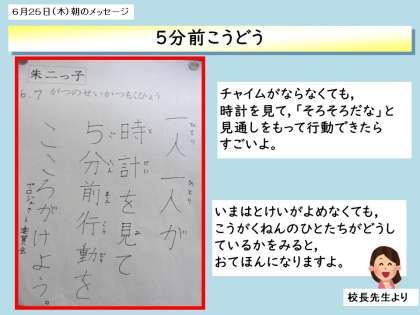 6月25日(木)朝のメッセージ
5分前こうどう
朱二っ子
6.7がつのせいかつもくひょう
一人一人が
時計を見て
5分前行動を
こころがけよう。
チャイムがならなくても,
時計を見て,「そろそろだな」と
見通しをもって行動できたら
すごいよ。
いまはとけいがよめなくても,
こうがくねんのひとたちがどうし
ているかをみると,
おてほんになりますよ。
校長先生より